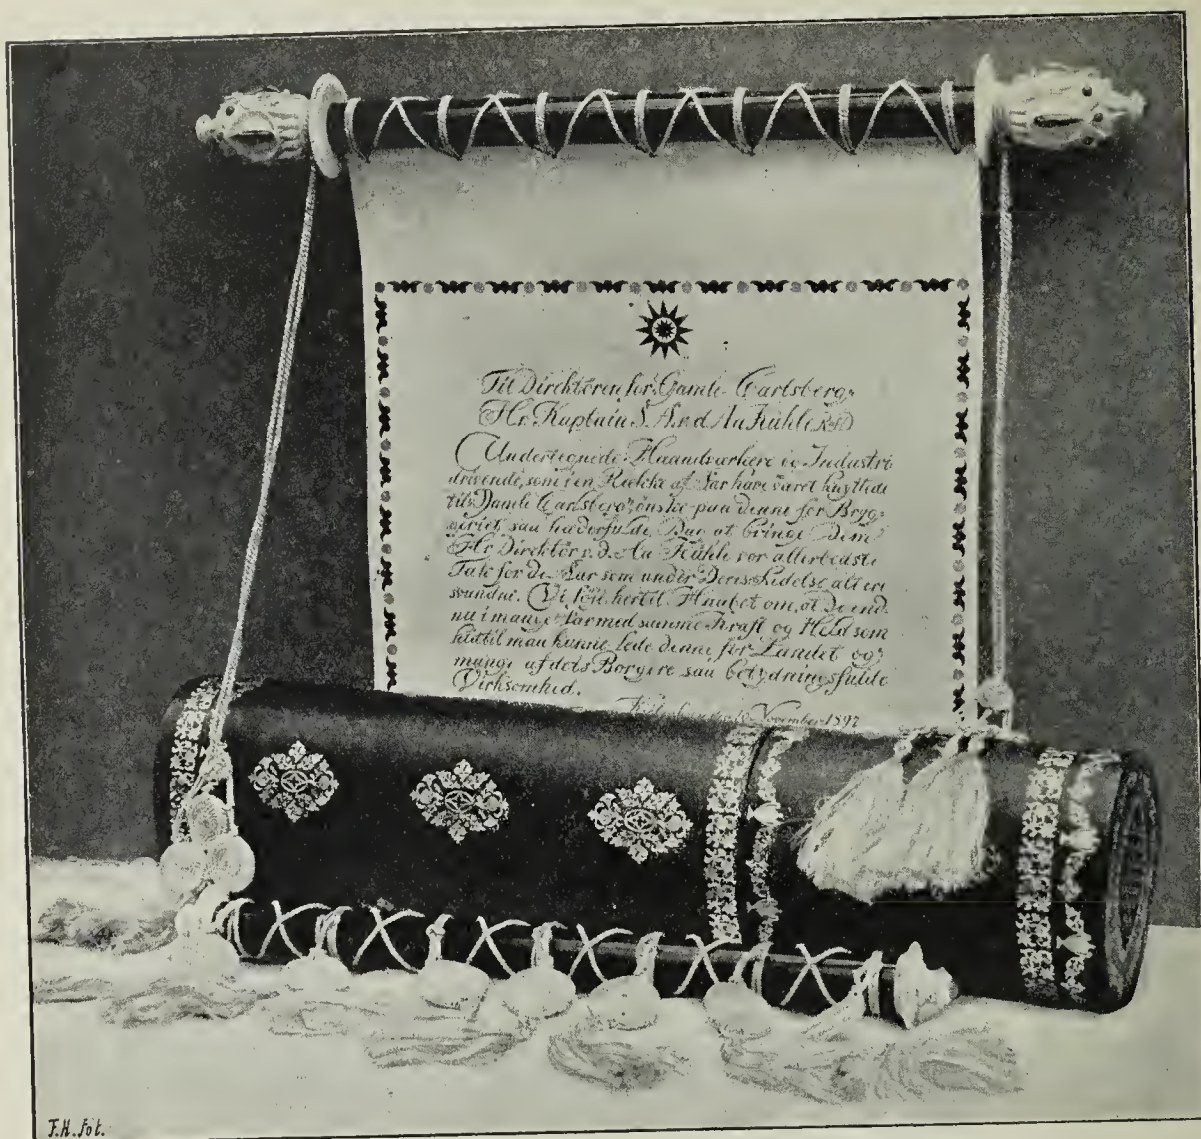 Til Direktören for "Gamle Carlsberg"
Hr. Kaptain S. A. v. d. Aa Kühle
Undertegnede Haandværkere og Industri
drivende, som i en Række af Aar have været knyttede
til "Gamle Carlsberg", önske paa denne for Bryg-
geriet saa hæderfulde Dag at bringe Dem
Hr. Direktör v. d. Aa Kühle vor allerbedste
Tak for de Aar som under Deres Ledelse alt ere
svundne. Vi föie hertil Haabet om, at De end-
nu i mange Aar med samme Kraft og Held som
hidtil maa kunne lede denne for Landet og
mange af dets Borgere saa betydningsfulde
Virksomhed.
November 1897
F.H. fot.